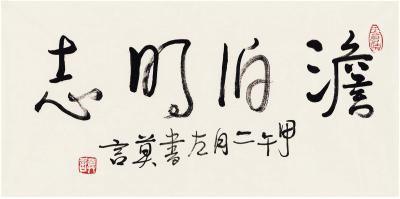 澹泊明志
甲午二月左書莫言